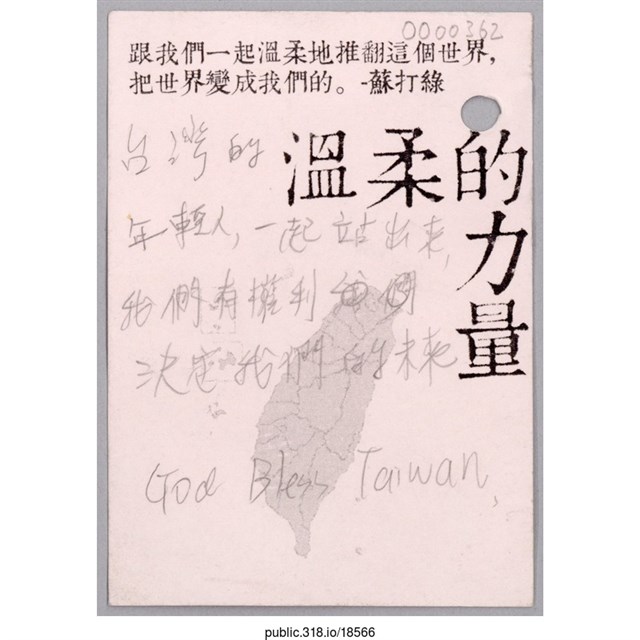 0000362
跟我們一起溫柔地推翻這個世界,
把世界變成我們的。-蘇打綠
溫柔的力量
台灣的
年輕人, 一起站出來,
我們有權利
決定我們的未來
God Bless Taiwan,
public.318.io/18566